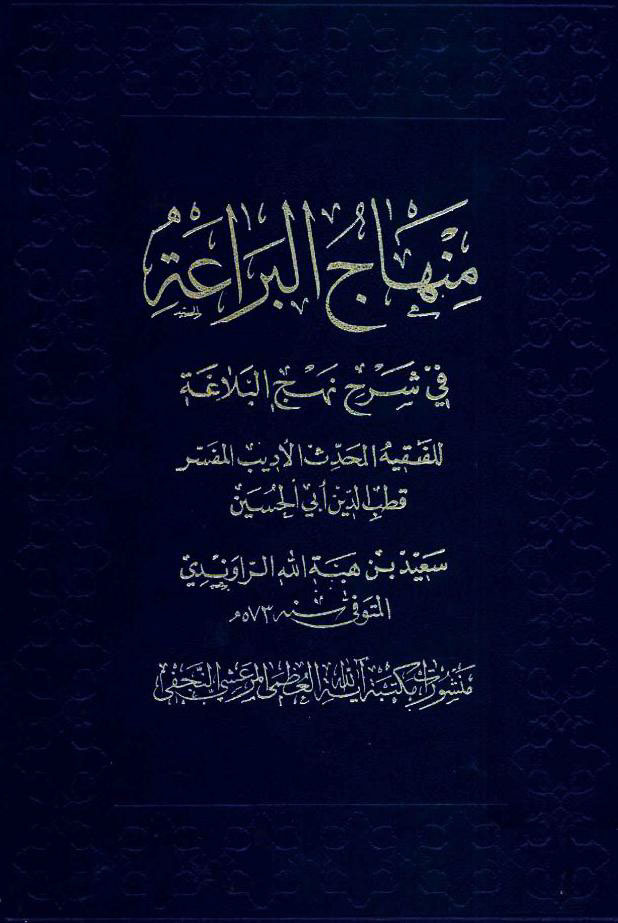 مِنْهَاجُ البَرَاعَةِ
في شَرْحِ نَهْجِ البَلاغَةِ
للفَقيهِ المحَدِّثِ الأديبِ المفَسِّر
قطبِ الدّين أبي الحُسَين
سَعيْد بْن هبَة الله الرّاوَنْدِي
المتوَفىٰ سنه ٥٧٣هـ
مَنشُورات مكتبَة آية الله العُظمى المرعَشي النّجَفي